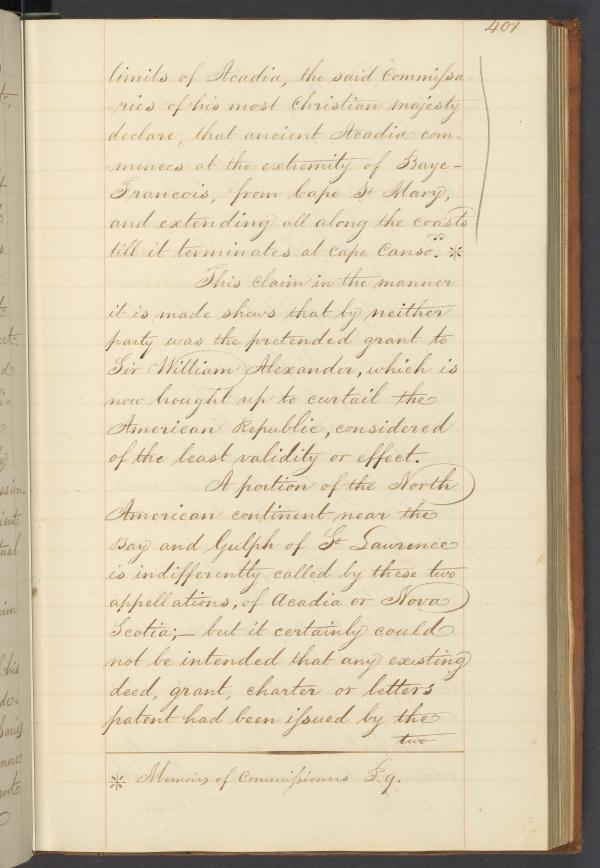 407
limits of Acadia, the said Commissa-
-ries of his most Christian majesty
declare, that ancient Acadia com-
-mences at the extremity of Baye-
Francois, from Cape St Mary,
and extending all along the coasts
till it terminates at Cape Canso." *
This claim in the manner
it is made shews that by neither
party was the pretended grant to
Sir William Alexander, which is
now bought up to curtail the
American Republic, considered
of the least validity or effect.
A portion of the North
American continent near the
Bay and Gulph of St Lawrence
is indifferently called by these two
appellations, of Acadia or Nova
Scotia;— but it certainly could
not be intended that any existing
deed, grant, charter or letters
patent had been issued by the
two
* Memoirs of Commissioners P.9.